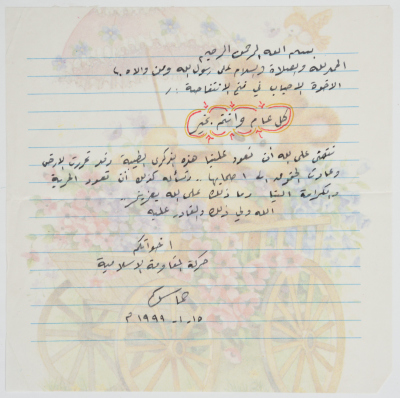 بسم الله الرحمن الرحيم
الحمد لله والصلاة والسلام على رسول الله ومن والاه
الاخوة الاحباب في فتح الانتفاضة
كل عام وانتم بخير
نتمنى على الله أن تعود علينا هذه الذكرى الطيبة وقد تحررت الارض
وعادت الحقوق الى اصحابها .. ونسأله كذلك أن تعود الحرية
والكرامة الينا وما ذلك على الله بعزيز ..
الله ولي ذلك والقادر عليه
اخوانكم
حركة المقاومة الاسلامية
حماس
١٩٩٩ م